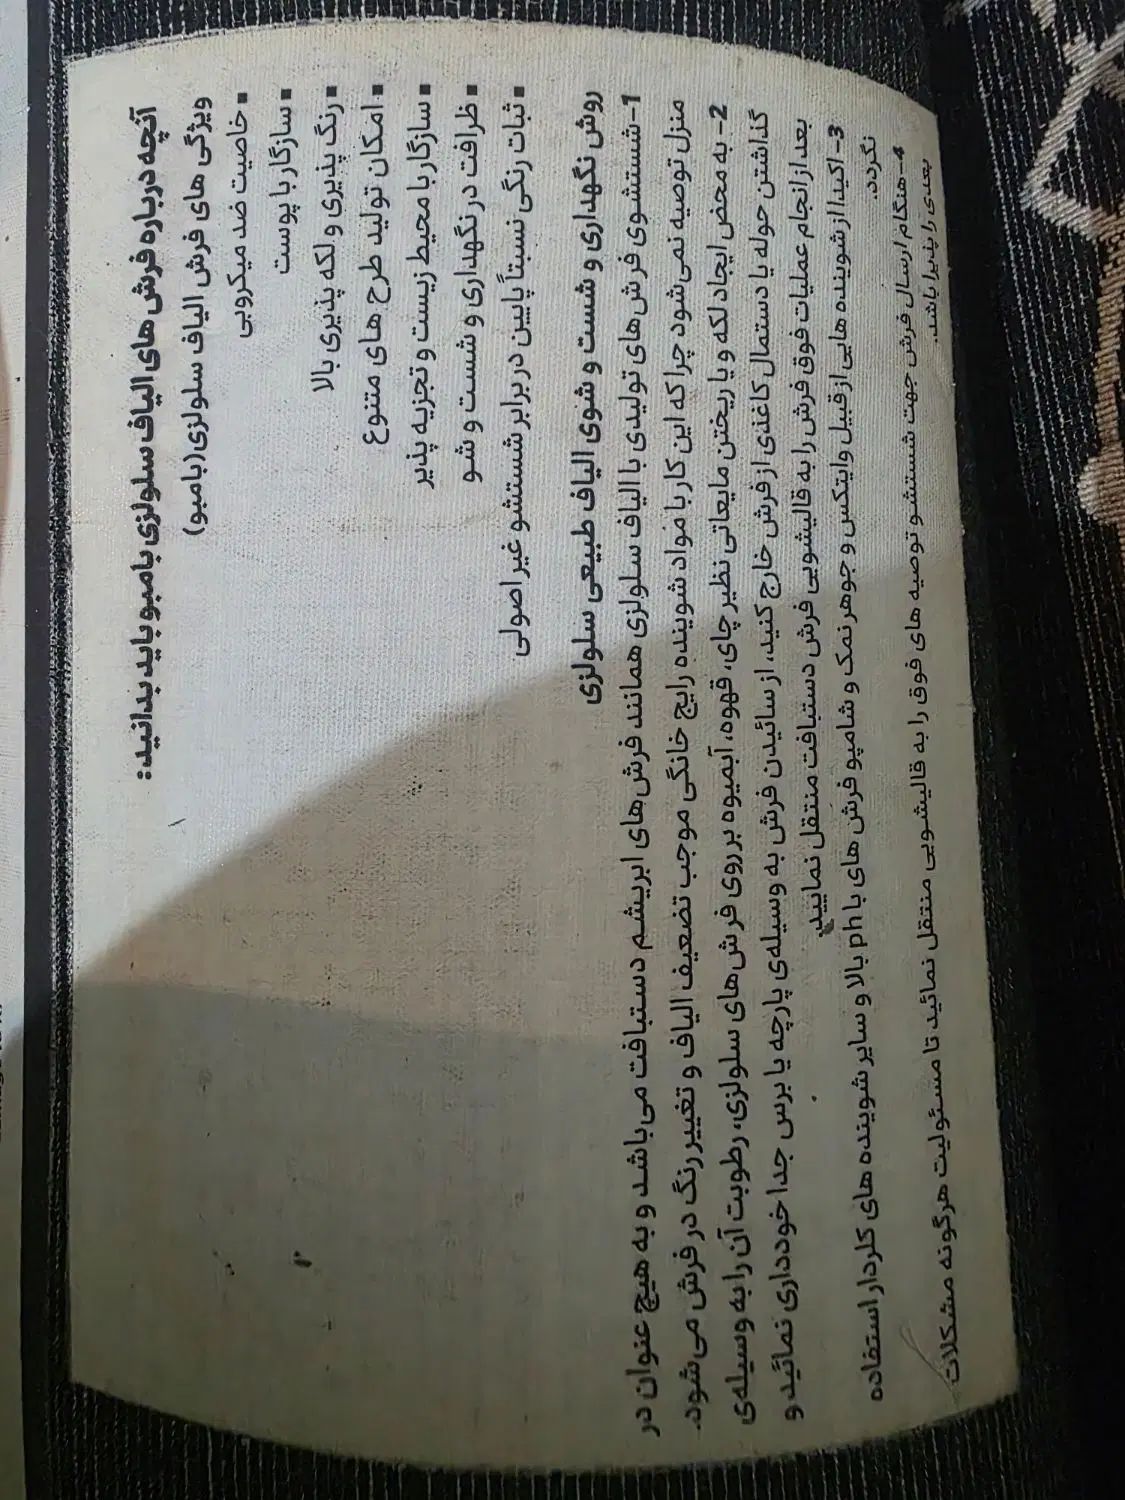 آنچه درباره فرش های الیاف سلولزی بامبو باید بدانید:
ویژگی های فرش الیاف سلولزی (بامبو)
▪ خاصیت ضد میکروبی
▪ سازگار با پوست
▪ رنگ پذیری و لکه پذیری بالا
▪ امکان تولید طرح های متنوع
▪ سازگار با محیط زیست و تجزیه پذیر
▪ ظرافت در نگهداری و شست و شو
▪ ثبات رنگی نسبتاً پایین در برابر شستشو غیر اصولی
روش نگهداری و شست و شوی الیاف طبیعی سلولزی
1-شستشوی فرش های تولیدی با الیاف سلولزی همانند فرش های ابریشم دستبافت می باشد و به هیچ عنوان در
منزل توصیه نمی شود چرا که این کار با مواد شوینده رایج خانگی موجب تضعیف الیاف و تغییر رنگ در فرش می شود.
2- به محض ایجاد لکه و یا ریختن مایعاتی نظیر چای، قهوه، آبمیوه بر روی فرش های سلولزی، رطوبت آن را به وسیله ی
گذاشتن حوله یا دستمال کاغذی از فرش خارج کنید، از سائیدن فرش به وسیله ی پارچه یا برس جدا خودداری نمائید و
بعد از انجام عملیات فوق فرش را به قالیشویی فرش دستبافت منتقل نمایید.
3- اکیدا از شوینده هایی از قبیل وایتکس و جوهر نمک و شامپو فرش های با ph بالا و سایر شوینده های کلردار استفاده
نگردد.
4- هنگام ارسال فرش جهت شستشو توصیه های فوق را به قالیشویی منتقل نمائید تا مسئولیت هرگونه مشکلات
بعدی را پذیرا باشد.